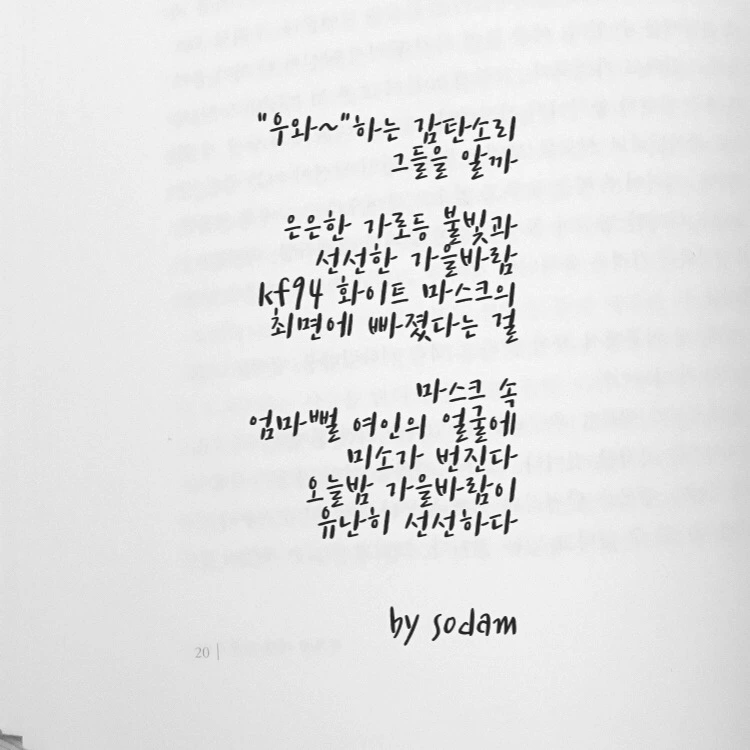 "우와~"하는 감탄소리
그들을 알까
은은한 가로등 불빛과
선선한 가을바람
kf94 화이트 마스크의
최면에 빠졌다는 걸
마스크 속
엄마뻘 여인의 얼굴에
미소가 번진다
오늘밤 가을바람이
유난히 선선하다
by sodam
20 |